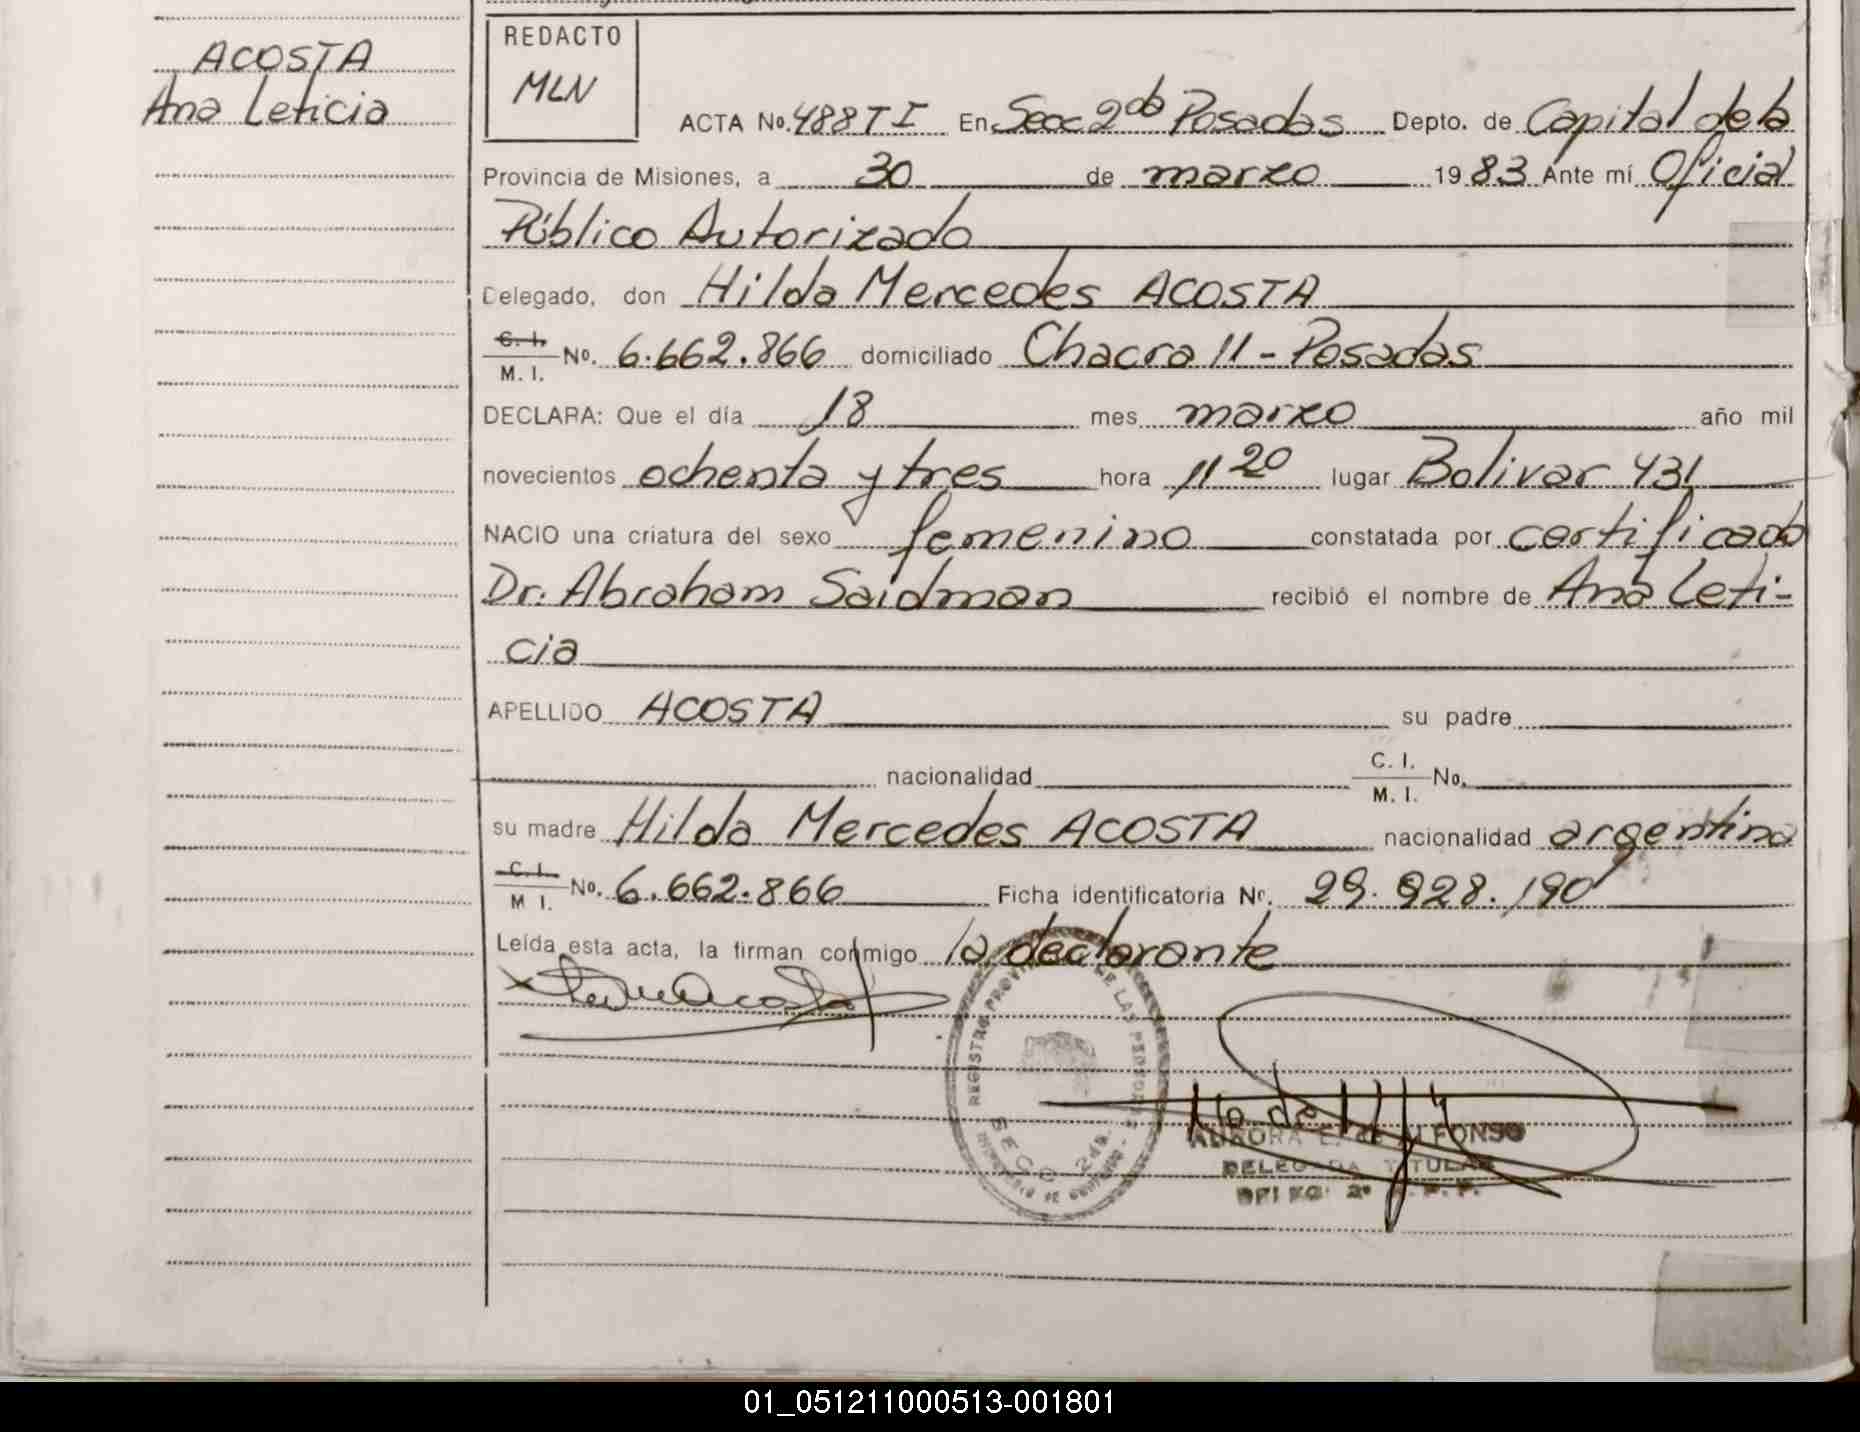 ACOSTA
Ana Leticia
REDACTO
MLN
ACTA No. 488 T I En Secc 2da Posadas Depto. de Capital de la
Provincia de Misiones, a 30 de marzo 1983 Ante mí Oficial
Público Autorizado
Delegado, don Hilda Mercedes ACOSTA
C. I.
M. I. No. 6.662.866 domiciliado Chacra 11 - Posadas
DECLARA: Que el día 18 mes marzo año mil
novecientos ochenta y tres hora 11 20 lugar Bolivar 431
NACIO una criatura del sexo femenino constatada por certificado
Dr. Abraham Saidman recibió el nombre de Ana Leti-
cia
APELLIDO ACOSTA su padre
nacionalidad C. I.
M. I. No.
su madre Hilda Mercedes ACOSTA nacionalidad argentina
C. I.
M I. No. 6.662.866 Ficha identificatoria No. 29.928.190
Leída esta acta, la firman conmigo la declarante
REGISTRO PROVINCIAL DE LAS PERSONAS
SECC 2da.
AURORA E. de ALFONSO
DELEGADA TITULAR
01_051211000513-001801